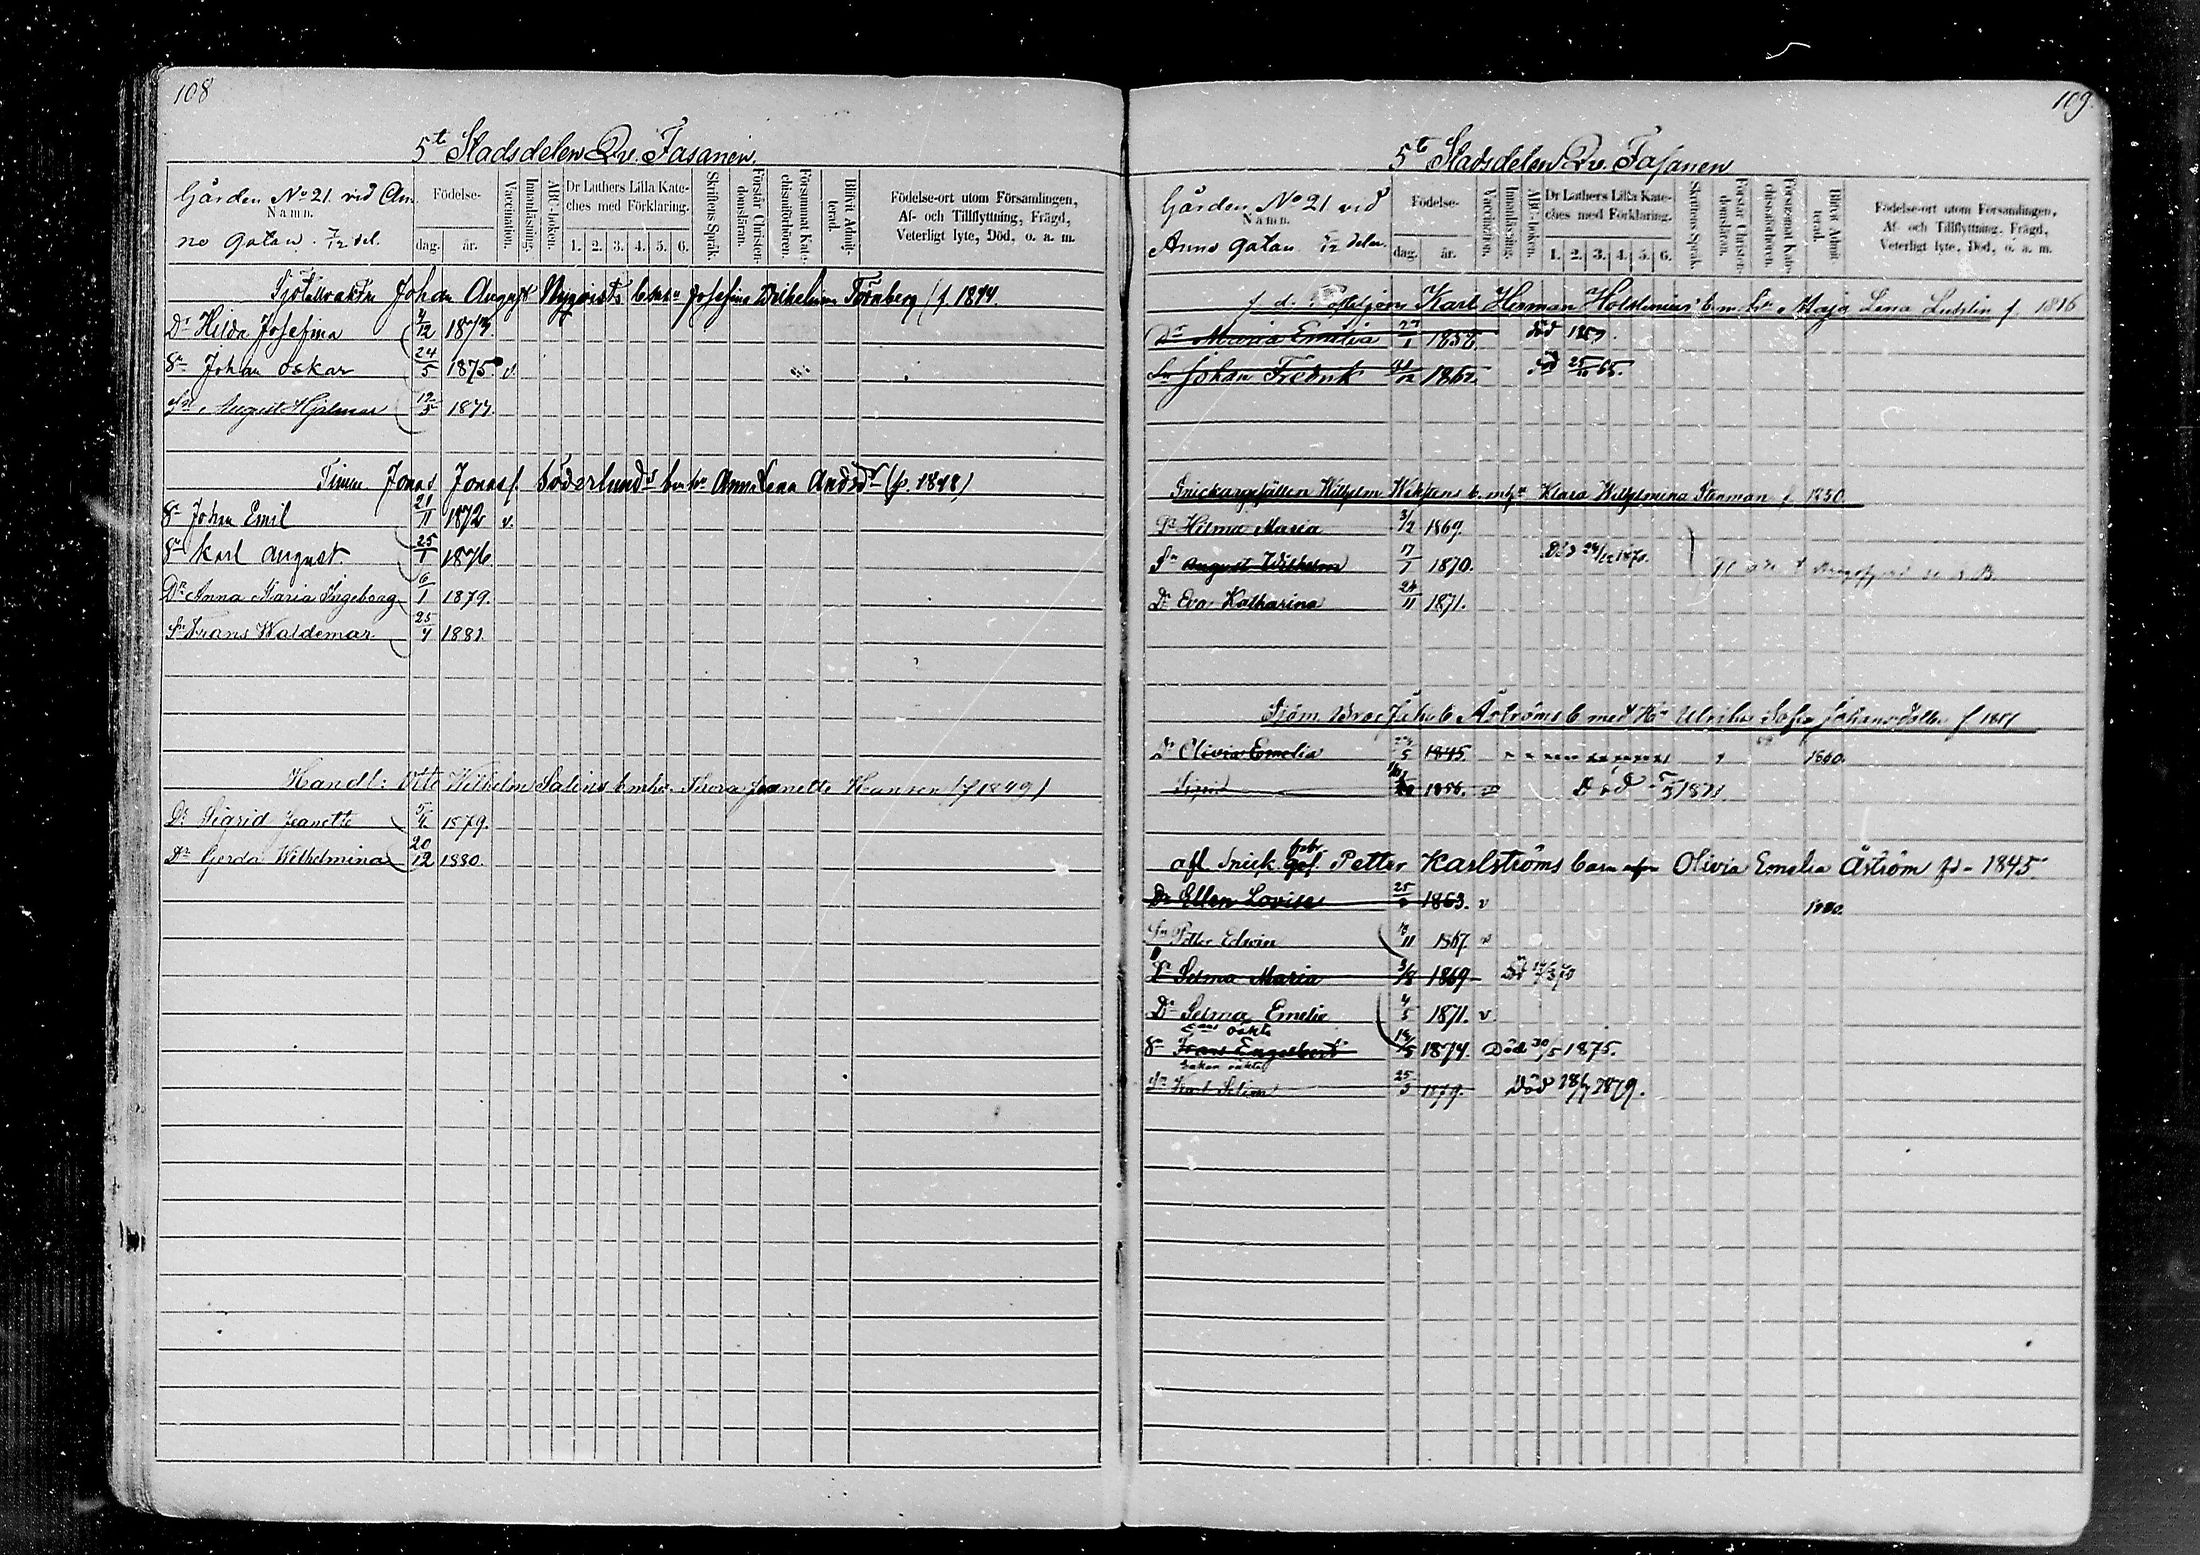 108
5t Stadsdelen Qv. Fasanen.
Gården No 21 vid An-
Namn.
no gatan. 7/12 del.
Födelse-
dag. år.
Vaccination.
Innanläsning.
ABC-boken.
Dr Luthers Lilla Kate-
ches med Förklaring.
1. 2. 3. 4. 5. 6.
Skriftens Språk.
Förstår Christen-
domsläran.
Försummat Kate-
chismiförhören.
Blivit Admit-
terad.
Födelse-ort utom Församlingen,
Af- och Tillflyttning, Frägd,
Veterligt lyte, Död, o. a. m.
Johan August Nyqvists b. m. hu Josefina Wilhelmina Törnberg (f 1844.
Dr Hilda Josefina 4/12 1873.
Sn Johan Oskar 24/5 1875. v.
Sn August Hjalmar 12/5 1877.
Timm Jonas Jonass. Söderlunds b m hu Anna Lena Andsdr (f. 1848)
Sn Johan Emil 21/11 1872 v.
Sn Karl August. 25/1 1876.
Dr Anna Maria Ingeborg 6/1 1879.
Sn Frans Waldemar 25/4 1881.
Handl: Otto Wilhelm Salins b m hu Thora Jeanette Hansen (f 1849)
Dr Sigrid Jeanette 1879.
Dr Gerda Wilhelmina 20/12 1880.
109.
5t Stadsdelen Qv. Fasanen
Gården No 21 vid
Namn.
Anno gatan 7/12 delen
Födelse-
dag. år.
Vaccination.
Innanläsning.
ABC-boken.
Dr Luthers Lilla Kate-
ches med Förklaring.
1. 2. 3. 4. 5. 6.
Skriftens Språk.
Förstår Christen-
domsläran.
Försummat Kate-
chismiförhören.
Blivit Admit-
terad.
Födelse-ort utom Församlingen,
Af- och Tillflyttning, Frägd,
Veterligt lyte, Död, o. a. m.
f. d. Karl Herman Holstenius' b. m. hu Maja Lena f. 1816
Dr Maria Emilia 1858. död
Sn Johan Fredrik 1862. död
Snickaregesällen Wilhelm b. m hu Klara Wilhelmina Stenman f 1850.
Dr Hilma Maria 3/2 1869.
Sn August Wilhelm 17/1 1870. Död 24/12 1870.
Dr Eva Katharina 24/11 1871.
Jakob Åströms b med Hu Ulrika Sofia Johansdotter f 1817
Dr Olivia Emelia 1845 1860.
1856. Död 5/5 1871.
afl. Snick. Petter Karlströms barn m hu Olivia Emelia Åström fd. 1845
Dr Ellen Lovisa 1863. v 1880.
Sn Petter Edvin 1867. v
Dr Selma Maria 3/8 1869 Död
Dr Selma Emelia 4/5 1871. v
oäkta
Sn Frans Engelbert 1874. Död 30/5 1875.
Sn Karl 25/3 1879. Död 18/7 1879.